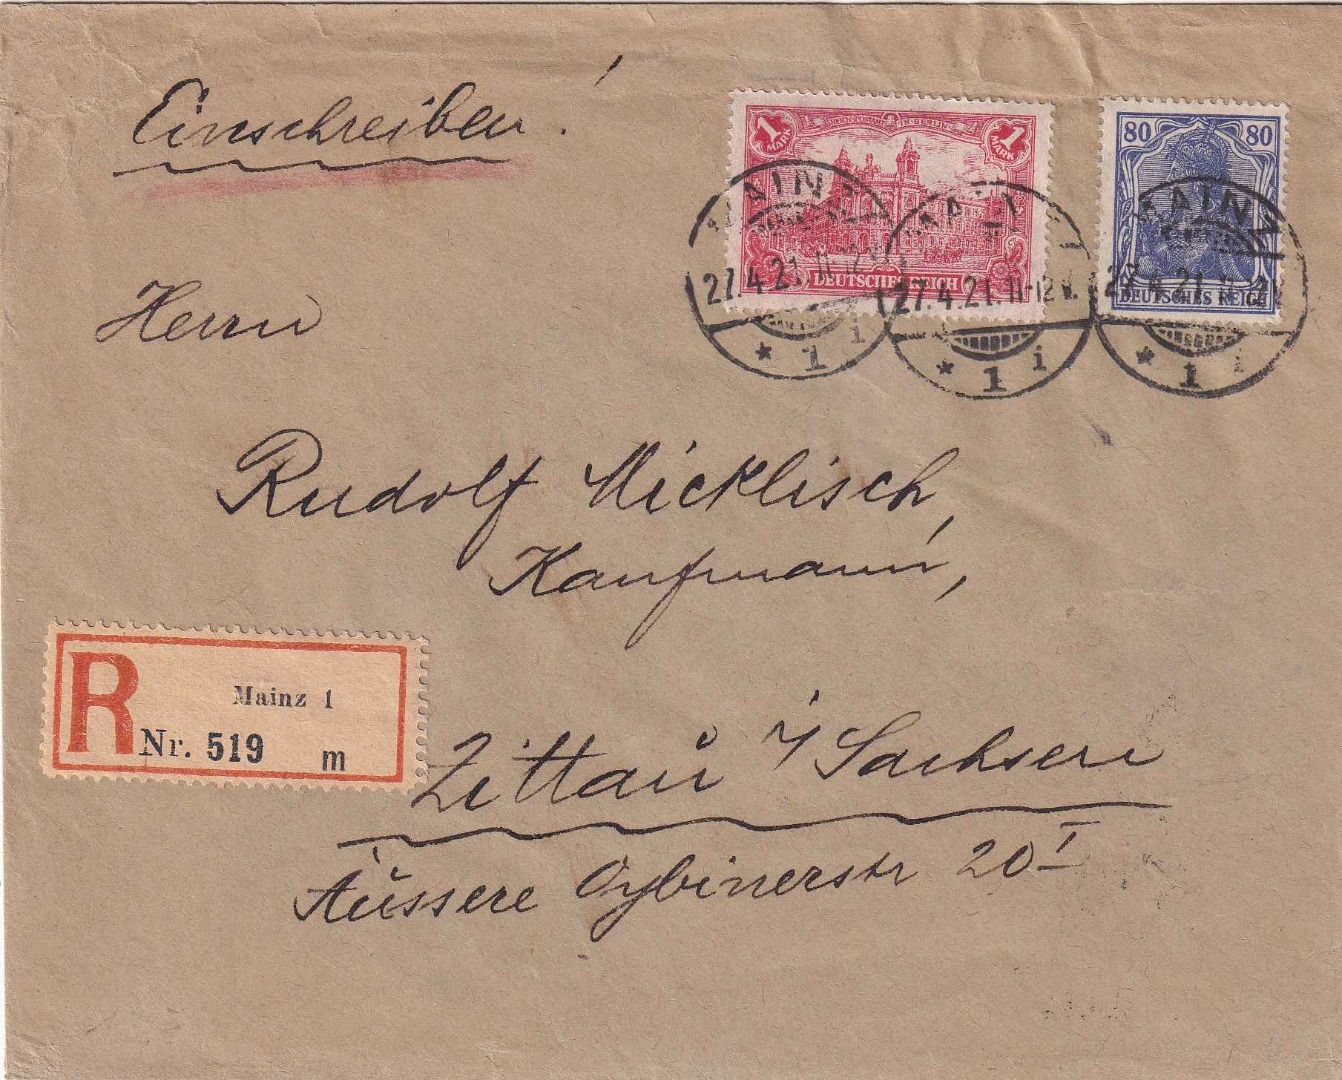 Einschreiben!
1 MARK REICHSPOSTAMT IN BERLIN 1 MARK
DEUTSCHES REICH
80 80
DEUTSCHES REICH
MAINZ
27.4.21.11-12V.
* 1 i
MAINZ
27.4.21.11-12V.
* 1 i
MAINZ
27.4.21.11-12V.
* 1 i
Herrn
Rudolf Micklisch,
Kaufmann,
R Mainz 1
Nr. 519 m
Zittau i/Sachsen
Äussere Oybinerstr 20 I